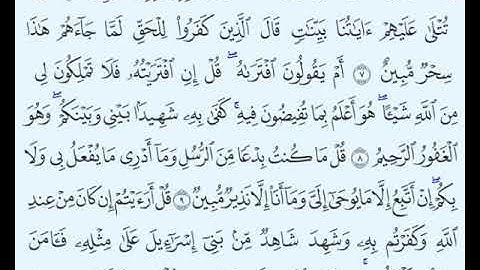 تُتْلَىٰ عَلَيْهِمْ ءَايَٰتُنَا بَيِّنَٰتٍ قَالَ الَّذِينَ كَفَرُوا۟ لِلْحَقِّ لَمَّا جَآءَهُمْ هَٰذَا
سِحْرٌ مُّبِينٌ ٧ أَمْ يَقُولُونَ افْتَرَىٰهُ ۖ قُلْ إِنِ افْتَرَيْتُهُۥ فَلَا تَمْلِكُونَ لِى
مِنَ اللَّهِ شَيْـًٔا ۖ هُوَ أَعْلَمُ بِمَا تُفِيضُونَ فِيهِ ۚ كَفَىٰ بِهِۦ شَهِيدًۢا بَيْنِى وَبَيْنَكُمْ ۖ وَهُوَ
الْغَفُورُ الرَّحِيمُ ٨ قُلْ مَا كُنتُ بِدْعًا مِّنَ الرُّسُلِ وَمَآ أَدْرِى مَا يُفْعَلُ بِى وَلَا
بِكُمْ ۖ إِنْ أَتَّبِعُ إِلَّا مَا يُوحَىٰٓ إِلَىَّ وَمَآ أَنَا۠ إِلَّا نَذِيرٌ مُّبِينٌ ٩ قُلْ أَرَءَيْتُمْ إِن كَانَ مِنْ عِندِ
اللَّهِ وَكَفَرْتُم بِهِۦ وَشَهِدَ شَاهِدٌ مِّنۢ بَنِىٓ إِسْرَٰٓءِيلَ عَلَىٰ مِثْلِهِۦ فَـَٔامَنَ